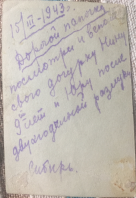 15/III-1943г.
Дорогой папочка
посмотри и вспомни
свою дочурку Нину
9 лет и Юру после
двухгодичной разлуки
Сибирь.